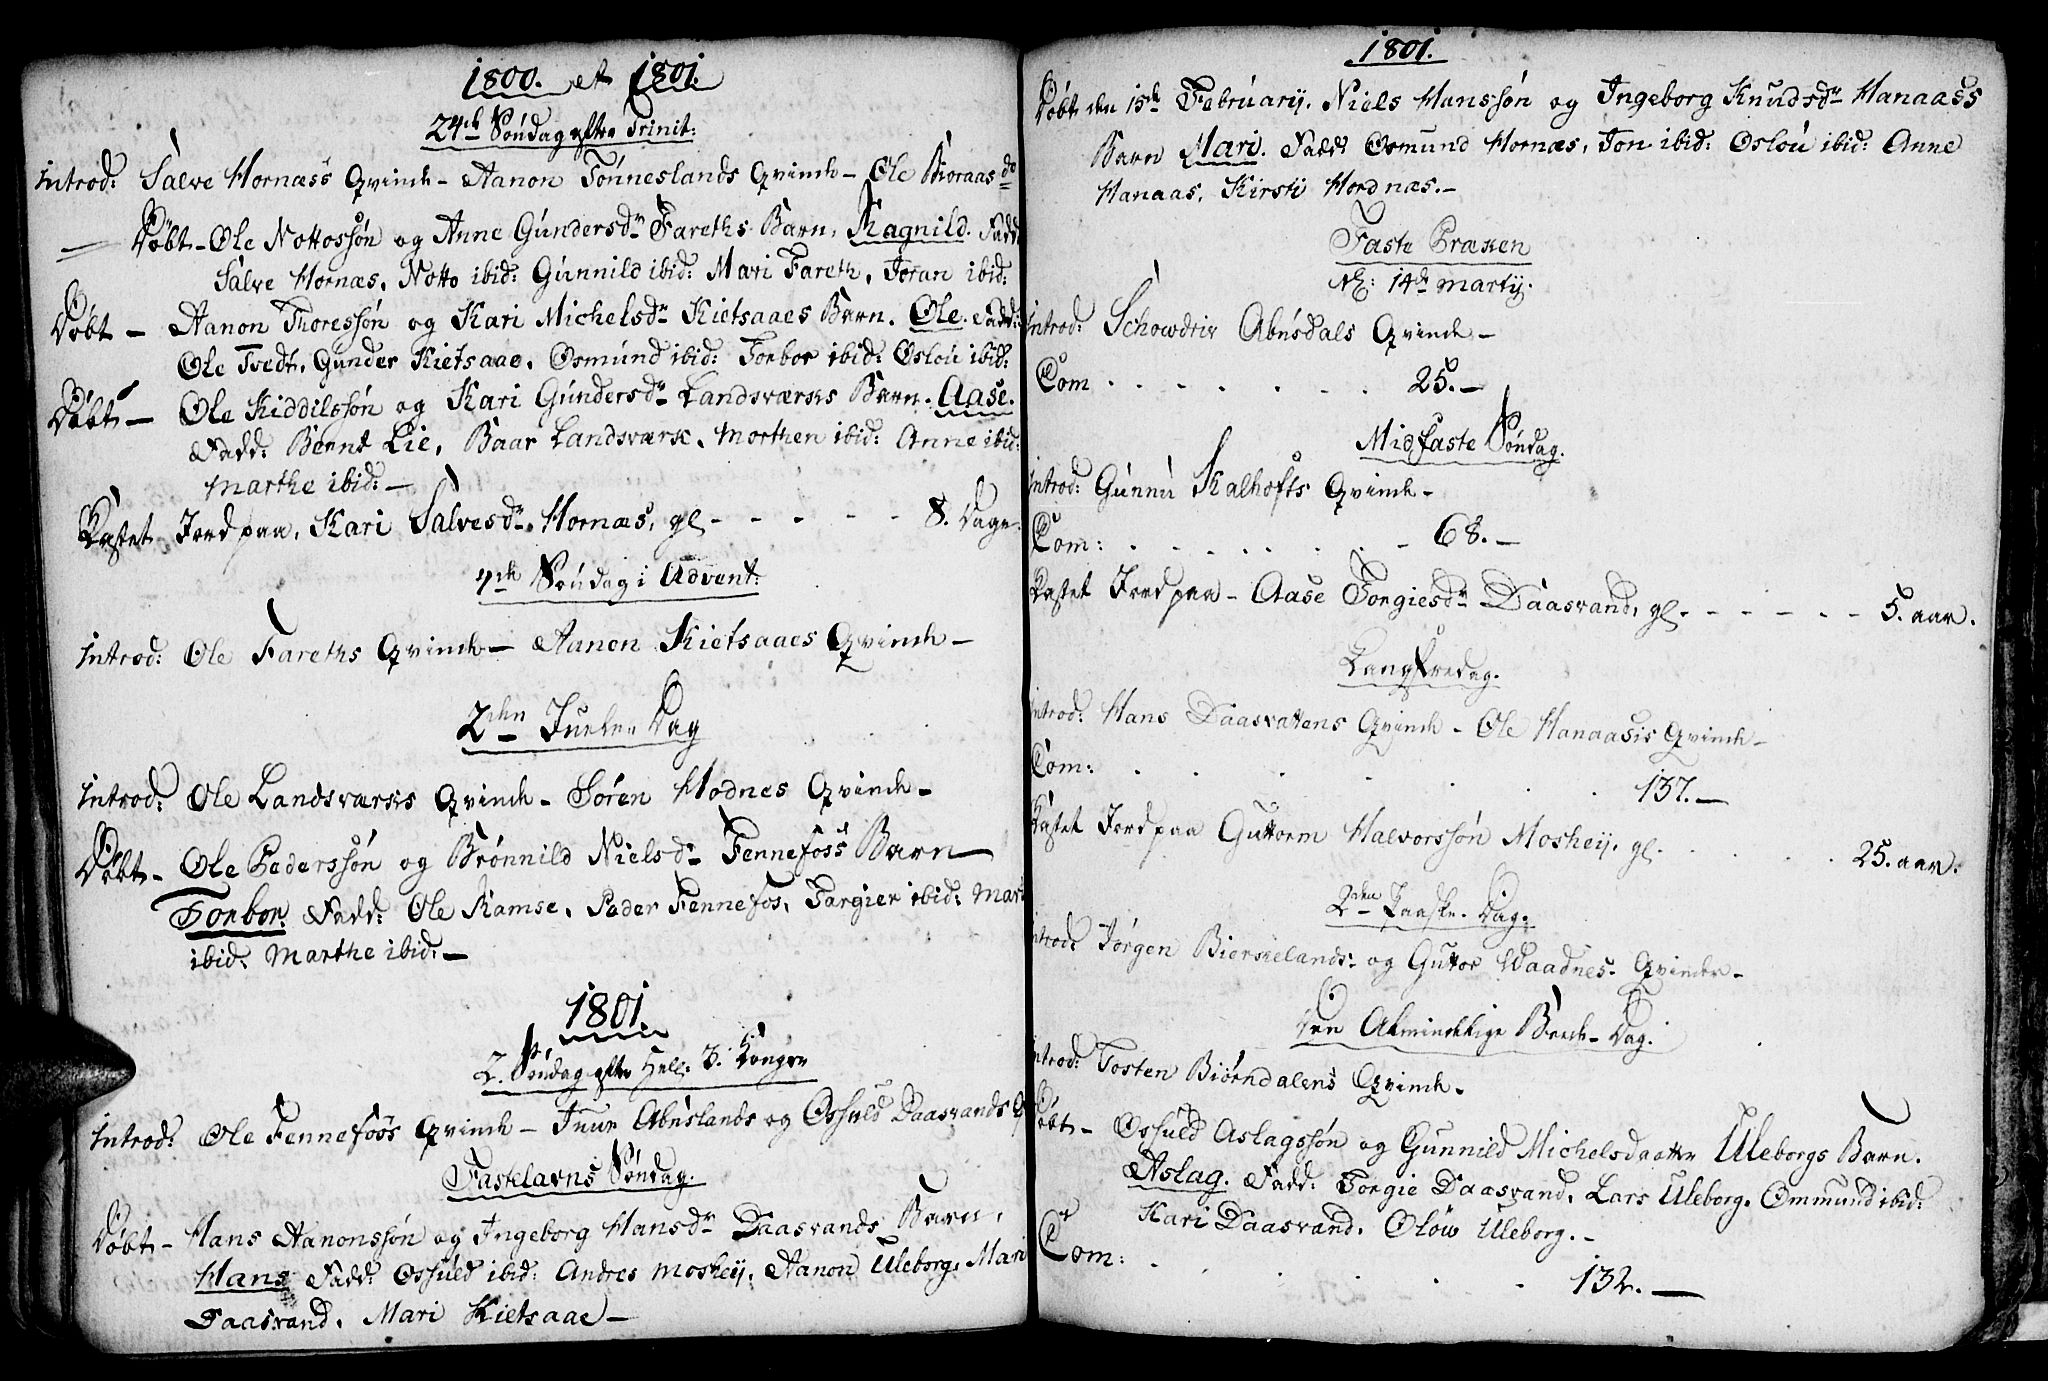 1800. et 1801.
24de Søndag efter Trinit:
Introd: Salve Hornæss Qvinde – Aanon Tønneslands Qvinde – Ole Bioraas do
Døbt – Ole Nottossøn og Anne Gundersdr Fareths Barn, Ragnild. Fadd:
Salve Hornæs, Notto ibid: Gunnild ibid: Mari Fareth, Joran ibid:
Døbt – Aanon Thoressøn og Kari Michelsdr Kietsaaes Barn. Ole. Fadd:
Ole Tvedt, Gunder Kietsaae, Osmund ibid: Torbor ibid: Oslou ibid:
Døbt – Ole Kiddilssøn og Kari Gundersdr Landsværks Barn. Aase.
Fadd: Bernt Lie, Baar Landsværk, Morthen ibid: Anne ibid:
Marthe ibid: –
Kastet Jord paa, Kari Salvesdr Hornæs, gl – – – – – 8. Dage.
4de Søndag i Advent:
Introd: Ole Fareths Qvinde – Aanon Kietsaaes Qvinde –
2den Juele-Dag
Introd: Ole Landsværks Qvinde – Søren Hodnes Qvinde –
Døbt – Ole Pederssøn og Brønnild Nielsdr Fennefoss Barn
Torbor. Fadd: Ole Ramse, Peder Fennefos, Targier ibid: Mari
ibid: Marthe ibid: –
1801.
2. Søndag efter Hell: 3. Konger
Introd: Ole Fennefoss Qvinde – Abuslands og Ossuld Daasvands Q
Fastelavns Søndag.
Døbt – Hans Aanonssøn og Ingeborg Hansdr Daasvands Barn,
Hans Fadd: Ossuld ibid: Andres Mosheij, Aanon Uleborg, Mari
Daasvand, Mari Kietsaae –
1801.
Døbt den 15de Februarij. Niels Hanssøn og Ingeborg Knudsdr Hanaass
Barn Mari. Fadd: Osmund Hornæs, Jon ibid: Oslou ibid: Anne
Hanaas, Kirsti Hordnæs. –
Faste Præken
14de Martij.
Introd: Abusdals Qvinde –
Com . . . . . . . 25. –
Midfaste Søndag.
Introd: Gunnu Kalhofts Qvinde –
Com: . . . . . . . – 68. –
Kastet Jord paa – Aase Torgiesdr Daasvand, gl. – – – – – – 5. aar.
Langfredag.
Introd: Hans Daasvattens Qvinde – Ole Hanaasis Qvinde –
Com: . . . . . . 137. –
Kastet Jord paa Guttorm Halvorssøn Mosheij, gl. . . . . 25. aar.
2den Paaske-Dag.
Introd: Jørgen Bierkelands- og Guttor Waadnes- Qvinder –
Den Almindelige Beede-Dag.
Introd: Tosten Biørndalens Qvinde –
Døbt – Ossuld Aslagssøn og Gunnild Michelsdaatter Uleborgs Barn.
Aslag. Fadd: Torgie Daasvand, Lars Uleborg, Ommund ibid:
Kari Daasvand, Olow Uleborg. –
Com: . . . . . . 132. –